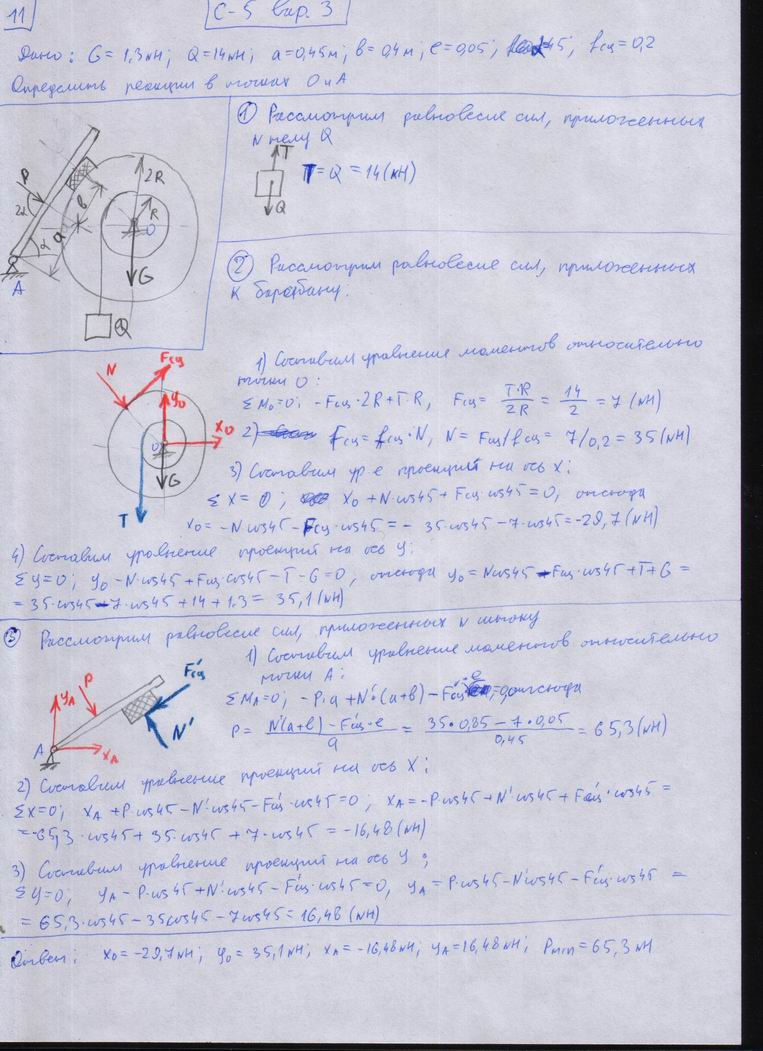 11
С-5 вар. 3
Дано: G = 1,3 кН; Q = 14 кН; a = 0,45 м; b = 0,4 м; e = 0,05; 45; fсц = 0,2
Определить реакции в точках О и А
P
2α
α
a
b
2R
R
O
G
A
Q
① Рассмотрим равновесие сил, приложенных
к телу Q
T
Q
T = Q = 14 (кН)
② Рассмотрим равновесие сил, приложенных
к барабану.
N
Fсц
y0
x0
O
G
T
1) Составим уравнение моментов относительно
точки О:
ΣM0=0; -Fсц·2R+T·R, Fсц = T·R/2R = 14/2 = 7 (кН)
2) Fсц = fсц·N, N = Fсц/fсц = 7/0,2 = 35 (кН)
3) Составим ур-е проекций на ось X:
ΣX = 0; X0 + N·cos45 + Fсц·cos45 = 0, отсюда
X0 = -N·cos45 - Fсц·cos45 = - 35·cos45 - 7·cos45 = -29,7 (кН)
4) Составим уравнение проекций на ось Y:
ΣY=0; Y0 - N·cos45 + Fсц·cos45 - T - G = 0, отсюда Y0 = Ncos45 - Fсц·cos45 + T + G =
= 35·cos45 - 7·cos45 + 14 + 1.3 = 35,1 (кН)
③ Рассмотрим равновесие сил, приложенных к штоку
P
yA
A
xA
F'сц
N'
1) Составим уравнение моментов относительно
точки А:
ΣMA=0; -P·a + N'·(a+b) - F'сц·e = 0, отсюда
P = N'(a+b) - F'сц·e/a = 35·0,85 - 7·0,05/0,45 = 65,3 (кН)
2) Составим уравнение проекций на ось X:
ΣX=0; XA + P·cos45 - N'·cos45 - F'сц·cos45 = 0; XA = -P·cos45 + N'·cos45 + F'сц·cos45 =
= -65,3·cos45 + 35·cos45 + 7·cos45 = -16,48 (кН)
3) Составим уравнение проекций на ось Y;
ΣY=0, YA - P·cos45 + N'·cos45 - F'сц·cos45 = 0, YA = P·cos45 - N'cos45 - F'сц·cos45 =
= 65,3·cos45 - 35cos45 - 7cos45 = 16,48 (кН)
Ответ: X0 = -29,7 кН; Y0 = 35,1 кН; XA = -16,48 кН; YA = 16,48 кН; Pmin = 65,3 кН